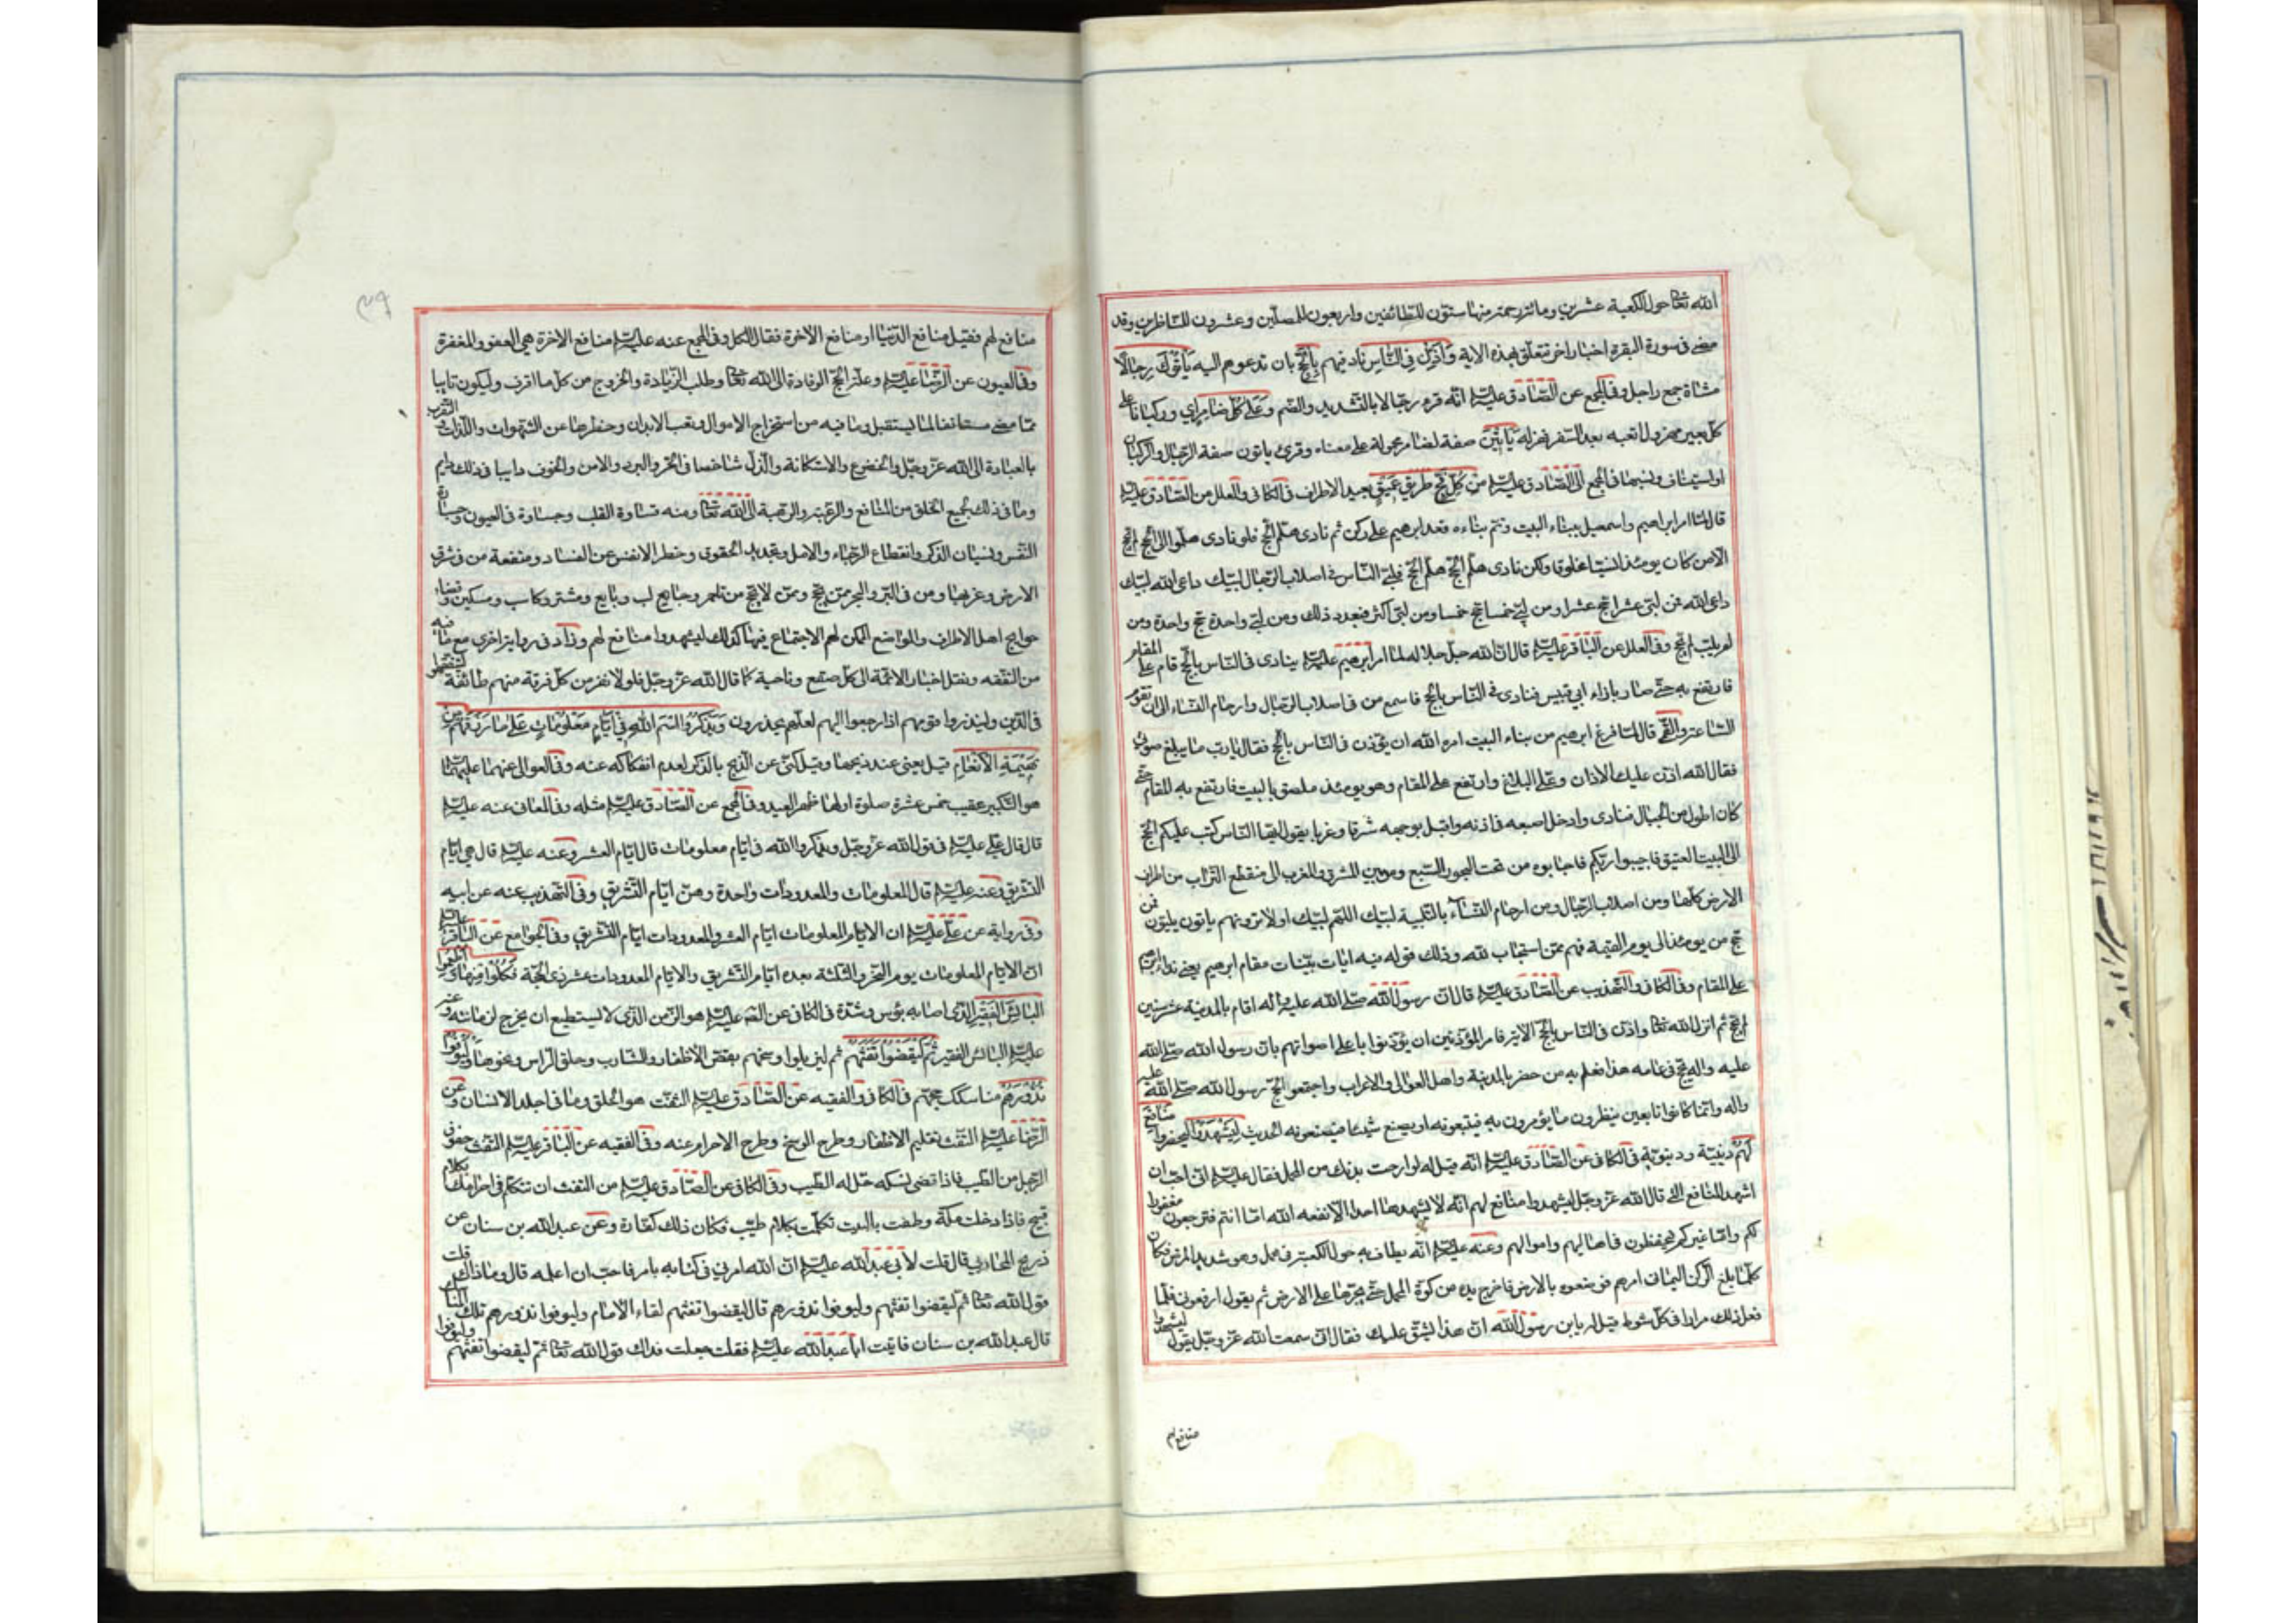 الله تعا حول الكعبة عشرين ومائة رحمة منها ستون للطائفين واربعون للمصلين وعشرون للناظرين وقد
مضى في سورة البقرة اخبار اخر تتعلق بهذه الاية وَاَذِّنْ فِي النَّاسِ ناد فيهم بِالْحَجِّ بان تدعوهم اليه يَأتُوكَ رِجَالًا
مشاة جمع راجل وفي المجمع عن الصادق عليه السلم انه قرء رجالا بالتشديد والضم وَعَلى كُلِّ ضَامِرٍ اي وركبانا على
كل بعير مهزول اتعبه بعد السفر فهزله يَاْتِينَ صفة لضامر محمولة على معناه وقرئ ياتون صفة الرجال والركبان
او استيناف ونسبها في المجمع الى الصادق عليه السلم مِنْ كُلِّ فَجٍّ طريق عَمِيقٍ بعيد الاطراف في الكافي والعلل من الصادق عليه السلم
قال لما امر ابراهيم واسمعيل ببناء البيت وتم بناءه قعد ابرهيم على ركن ثم نادى هلم الحج فلو نادى هلموا الى الحج لم يحج
الا من كان يومئذ انسيا مخلوقا ولكن نادى هلم الحج هلم الحج فلبى الناس في اصلاب الرجال لبيك داعى الله لبيك
داعى الله فمن لبى عشرا حج عشرا ومن لبى خمسا حج خمسا ومن لبى اكثر فبعدد ذلك ومن لبى واحدة حج واحدة ومن
لم يلب لم يحج وفي العلل عن الباقر عليه السلم قال ان الله جل جلاله لما امر ابرهيم عليه السلم ينادى في الناس بالحج قام على المقام
فارتفع به حتى صار بازاء ابي قبيس فنادى في الناس بالحج فاسمع من في اصلاب الرجال وارحام النساء الى ان تقوم
الساعة والقمي قال لما فرغ ابرهيم من بناء البيت امره الله ان يؤذن في الناس بالحج فقال يا رب ما يبلغ صوتي
فقال الله اذن عليك الاذان وعلي البلاغ وارتفع على المقام وهو يومئذ ملصق بالبيت فارتفع به المقام حتى
كان اطول من الجبال فنادى وادخل اصبعه في اذنه واقبل بوجهه شرقا وغربا يقول ايها الناس كتب عليكم الحج
الى البيت العتيق فاجيبوا ربكم فاجابوه من تحت البحور السبع ومن بين المشرق والمغرب الى منقطع التراب من اطراف
الارض كلها ومن اصلاب الرجال ومن ارحام النساء بالتلبية لبيك اللهم لبيك اولا ترونهم ياتون يلبون فمن
حج من يومئذ الى يوم القيمة فهم ممن استجاب لله وذلك قوله فيه ايات بينات مقام ابرهيم يعني نداء ابرهيم
على المقام وفي الكافي والتهذيب عن الصادق عليه السلم قال ان رسول الله صلى الله عليه واله اقام بالمدينة عشر سنين
لم يحج ثم انزل الله تعا واذن في الناس بالحج الاية فامر المؤذنين ان يؤذنوا باعلى اصواتهم بان رسول الله صلى الله
عليه واله يحج في عامه هذا فعلم به من حضر بالمدينة واهل العوالي والاعراب واجتمعوا لحج رسول الله صلى الله عليه
واله وانما كانوا تابعين ينظرون ما يؤمرون به فيتبعونه او يصنع شيئا فيصنعونه الحديث لِيَشْهَدُوا ليحضروا مَنَافِعَ
لَهُمْ دينية ودنيوية في الكافي عن الصادق عليه السلم انه قيل له لو ارحت بدنك من المحمل فقال عليه السلم انى احب ان
اشهد المنافع التي قال الله عز وجل ليشهدوا منافع لهم انه لا يشهدها احد الا نفعه الله اما انتم فترجعون مغفورا
لكم واما غيركم فيحفظون في اهاليهم واموالهم وعنه عليه السلم انه يطاف به حول الكعبة في محمل وهو شديد المرض فكان
كلما بلغ الركن اليماني امرهم فوضعوه بالارض فاخرج يده من كوة المحمل حتى يجرها على الارض ثم يقول ارفعوني فلما
فعل ذلك مرارا في كل شوط قيل له يا بن رسول الله ان هذا يشق عليك فقال اني سمعت الله عز وجل يقول ليشهدوا
منافع لهم
منافع لهم فقيل منافع الدنيا او منافع الاخرة فقال الكل وفي المجمع عنه عليه السلم منافع الاخرة هي العفو والمغفرة
وفي العيون عن الرضا عليه السلم وعلة الحج الوفادة الى الله تعا وطلب الزيادة والخروج من كل ما اقترف وليكون تايبا
مما مضى مستانفا لما يستقبل وما فيه من استخراج الاموال وتعب الابدان وحظرها عن الشهوات واللذات والتقرب
بالعبادة الى الله عز وجل والخضوع والاستكانة والذل شاخصا في الحر والبرد والامن والخوف دايبا في ذلك دايم
وما في ذلك لجميع الخلق من المنافع والرغبة والرهبة الى الله تعا ومنه قساوة القلب وجسارة في العيون وجسارة
النفس ونسيان الذكر وانقطاع الرجاء والامل وتجديد الحقوق وحظر الانفس عن الفساد ومنفعة من في شرق
الارض وغربها ومن في البر والبحر ممن يحج وممن لا يحج من تاجر وجالب وبايع ومشتر وكاسب ومسكين وقضاء
حوايج اهل الاطراف والمواضع الممكن لهم الاجتماع فيها كذلك ليشهدوا منافع لهم وزاد في رواية اخرى مع ما فيه
من التفقه ونقل اخبار الائمة الى كل صقع وناحية كما قال الله عز وجل فلولا نفر من كل فرقة منهم طائفة ليتفقهوا
في الدين ولينذروا قومهم اذا رجعوا اليهم لعلهم يحذرون وَيَذْكُرُوا اسْمَ اللهِ فِي اَيَّامٍ مَعْلُومَاتٍ عَلى مَا رَزَقَهُمْ مِنْ
بَهِيمَةِ الْاَنْعَامِ قيل يعني عند ذبحها وقيل كنى عن الذبح بالذكر لعدم انفكاكه عنه وفي العوالى عنهما عليهما السلم
هو التكبير عقيب خمس عشرة صلوة اولها ظهر العيد وفي المجمع عن الصادق عليه السلم مثله وفي المعاني عنه عليه السلم
قال قال علي عليه السلم في قول الله عز وجل ويذكروا الله في ايام معلومات قال ايام العشر وعنه عليه السلم قال هي ايام
التشريق وعنه عليه السلم قال المعلومات والمعدودات واحدة وهن ايام التشريق وفي التهذيب عنه عن ابيه
وفي رواية عن علي عليه السلم ان الايام المعلومات ايام العشر والمعدودات ايام التشريق وفي الجوامع عن الباقر عليه السلم
ان الايام المعلومات يوم النحر والثلثة بعده ايام التشريق والايام المعدودات عشر ذي الحجة فَكُلُوا مِنْهَا وَاَطْعِمُوا
الْبَائِسَ الْفَقِيرَ الذي اصابه بؤس وشدة في الكافي عن الصم عليه السلم هو الزمن الذي لا يستطيع ان يخرج لزمانته وعنه
عليه السلم البائس الفقير ثُمَّ لْيَقْضُوا تَفَثَهُمْ ثم ليزيلوا وسخهم بقص الاظفار والشارب وحلق الراس ونحوها وَلْيُوفُوا
نُذُورَهُمْ مناسك حجهم في الكافي والفقيه عن الصادق عليه السلم التفث هو الحلق وما في جلد الانسان وعن
الرضا عليه السلم التفث تقليم الاظفار وطرح الوسخ وطرح الاحرام عنه وفي الفقيه عن الباقر عليه السلم التفث حفوف
الرجل من الطيب فاذا قضى نسكه حل له الطيب وفي الكافي عن الصادق عليه السلم من التفث ان تتكلم في احرامك بكلام
قبيح فاذا دخلت مكة وطفت بالبيت تكلمت بكلام طيب فكان ذلك كفارة وعن عبد الله بن سنان عن
ذريح المحاربي قال قلت لابي عبد الله عليه السلم ان الله امرني في كتابه بامر فاحب ان اعلمه قال وما ذاك قلت
قول الله تعا ثم ليقضوا تفثهم وليوفوا نذورهم قال ليقضوا تفثهم لقاء الامام وليوفوا نذورهم تلك المناسك
قال عبد الله بن سنان فاتيت ابا عبد الله عليه السلم فقلت جعلت فداك قول الله تعا ثم ليقضوا تفثهم وليوفوا